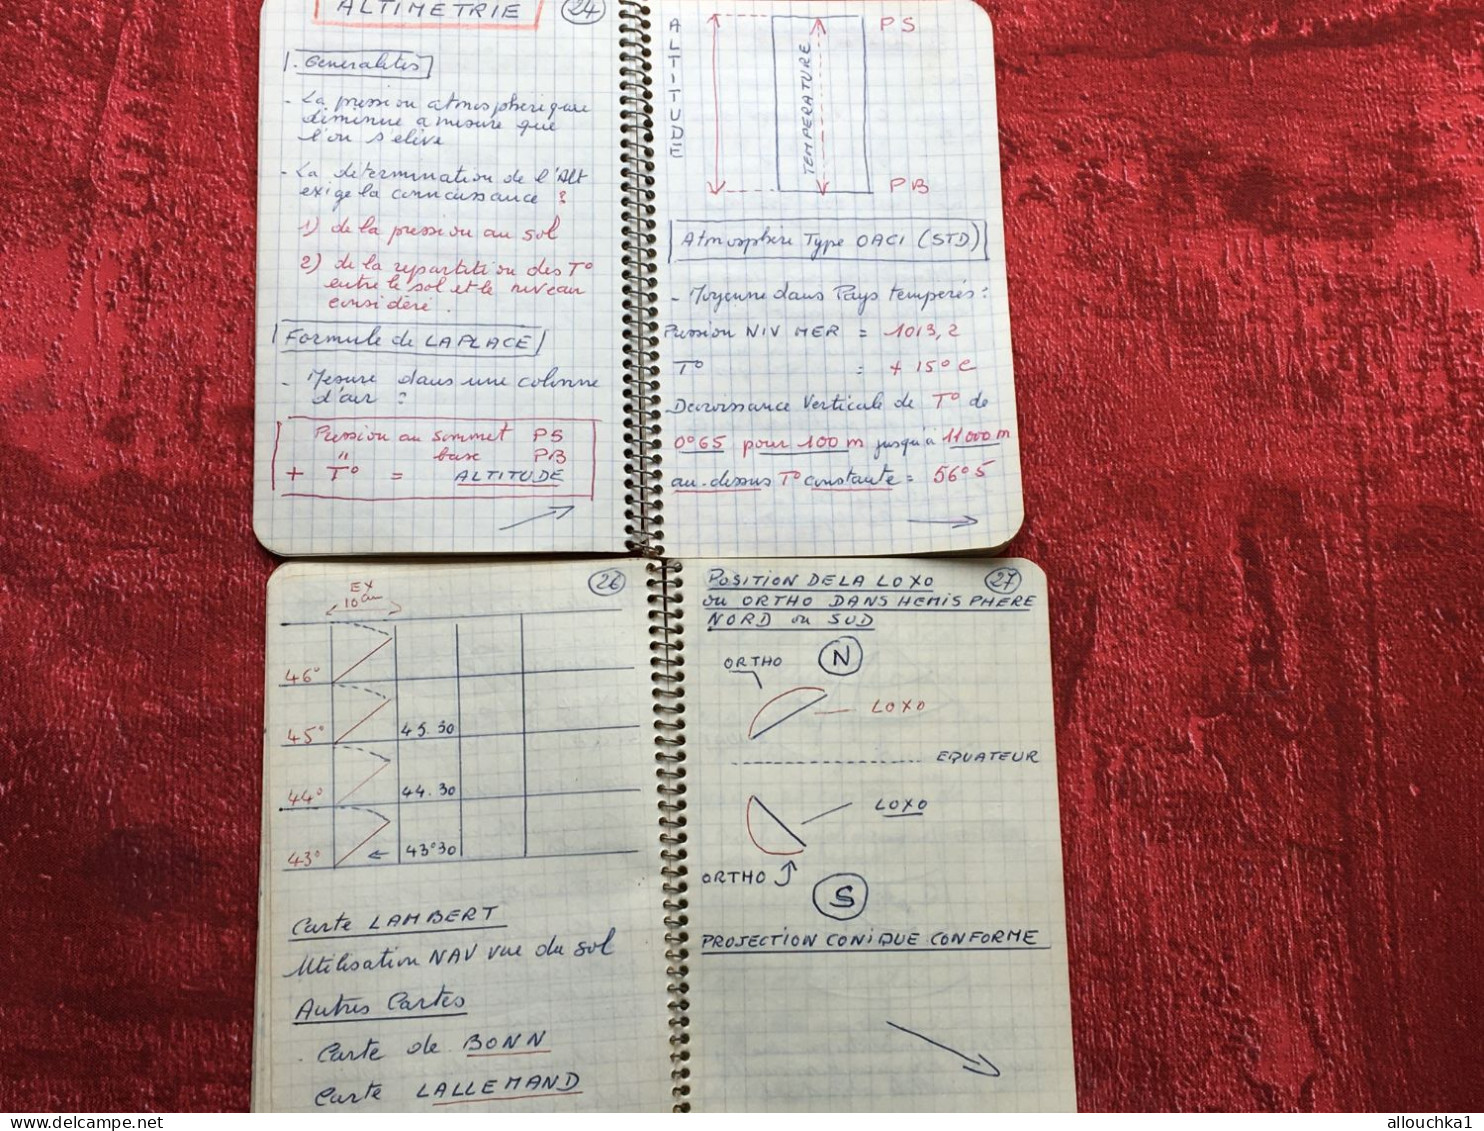 ALTIMETRIE
24
1. Generalites
- La pression atmospherique
diminue a mesure que
l'on s'elève
- La determination de l'Alt
exige la connaissance :
1) de la pression au sol
2) de la repartition des T°
entre le sol et le niveau
considéré.
Formule de LAPLACE
- Mesure dans une colonne
d'air :
Pression au sommet PS
" base PB
+ T° = ALTITUDE
ALTITUDE
TEMPERATURE
PS
PB
Atmosphère Type OACI (STD)
- Moyenne dans Pays temperés :
Pression NIV MER = 1013,2
T° = + 15° C
Decroissance Verticale de T° de
0°65 pour 100 m jusqu'à 11000 m
au-dessus T° constante = 56°5
26
EX
10 cm
46°
45°
45.30
44°
44.30
43°
43°30
Carte LAMBERT
Utilisation NAV vue du sol
Autres Cartes
. Carte de BONN
Carte LALLEMAND
POSITION DE LA LOXO
27
ou ORTHO DANS HEMISPHERE
NORD ou SUD
ORTHO
N
LOXO
EQUATEUR
LOXO
ORTHO
S
PROJECTION CONIQUE CONFORME
delcampe.net
allouchka1